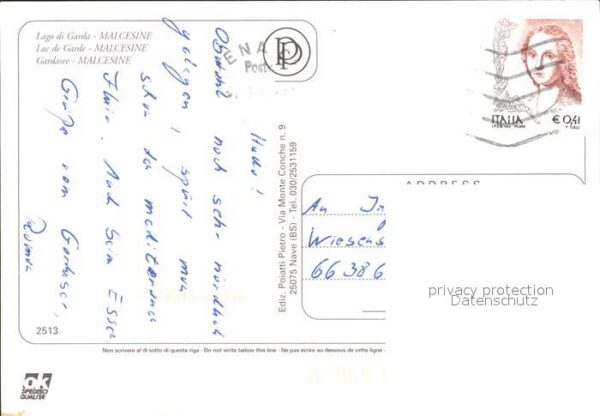 Lago di Garda - MALCESINE
Lac de Garde - MALCESINE
Gardasee - MALCESINE
P
Poste
ITALIA
€ 0,41
I.P.Z.S. ROMA
Hallo!
Obwohl noch sehr nördlich
gelegen, spürt man
schon das mediterrane
Flair. Auch beim Essen
Grüße vom Gardasee,
2513
Ediz. Poiatti Pietro - Via Monte Conche n. 9
25075 Nave (BS) - Tel. 030/2531159
ADDRESS
An
66386
privacy protection
Datenschutz
Non scrivere al di sotto di questa riga - Do not write below this line - Ne pas écrire au dessous de cette ligne -
ok
SPEDISCI
QUALITÀ!